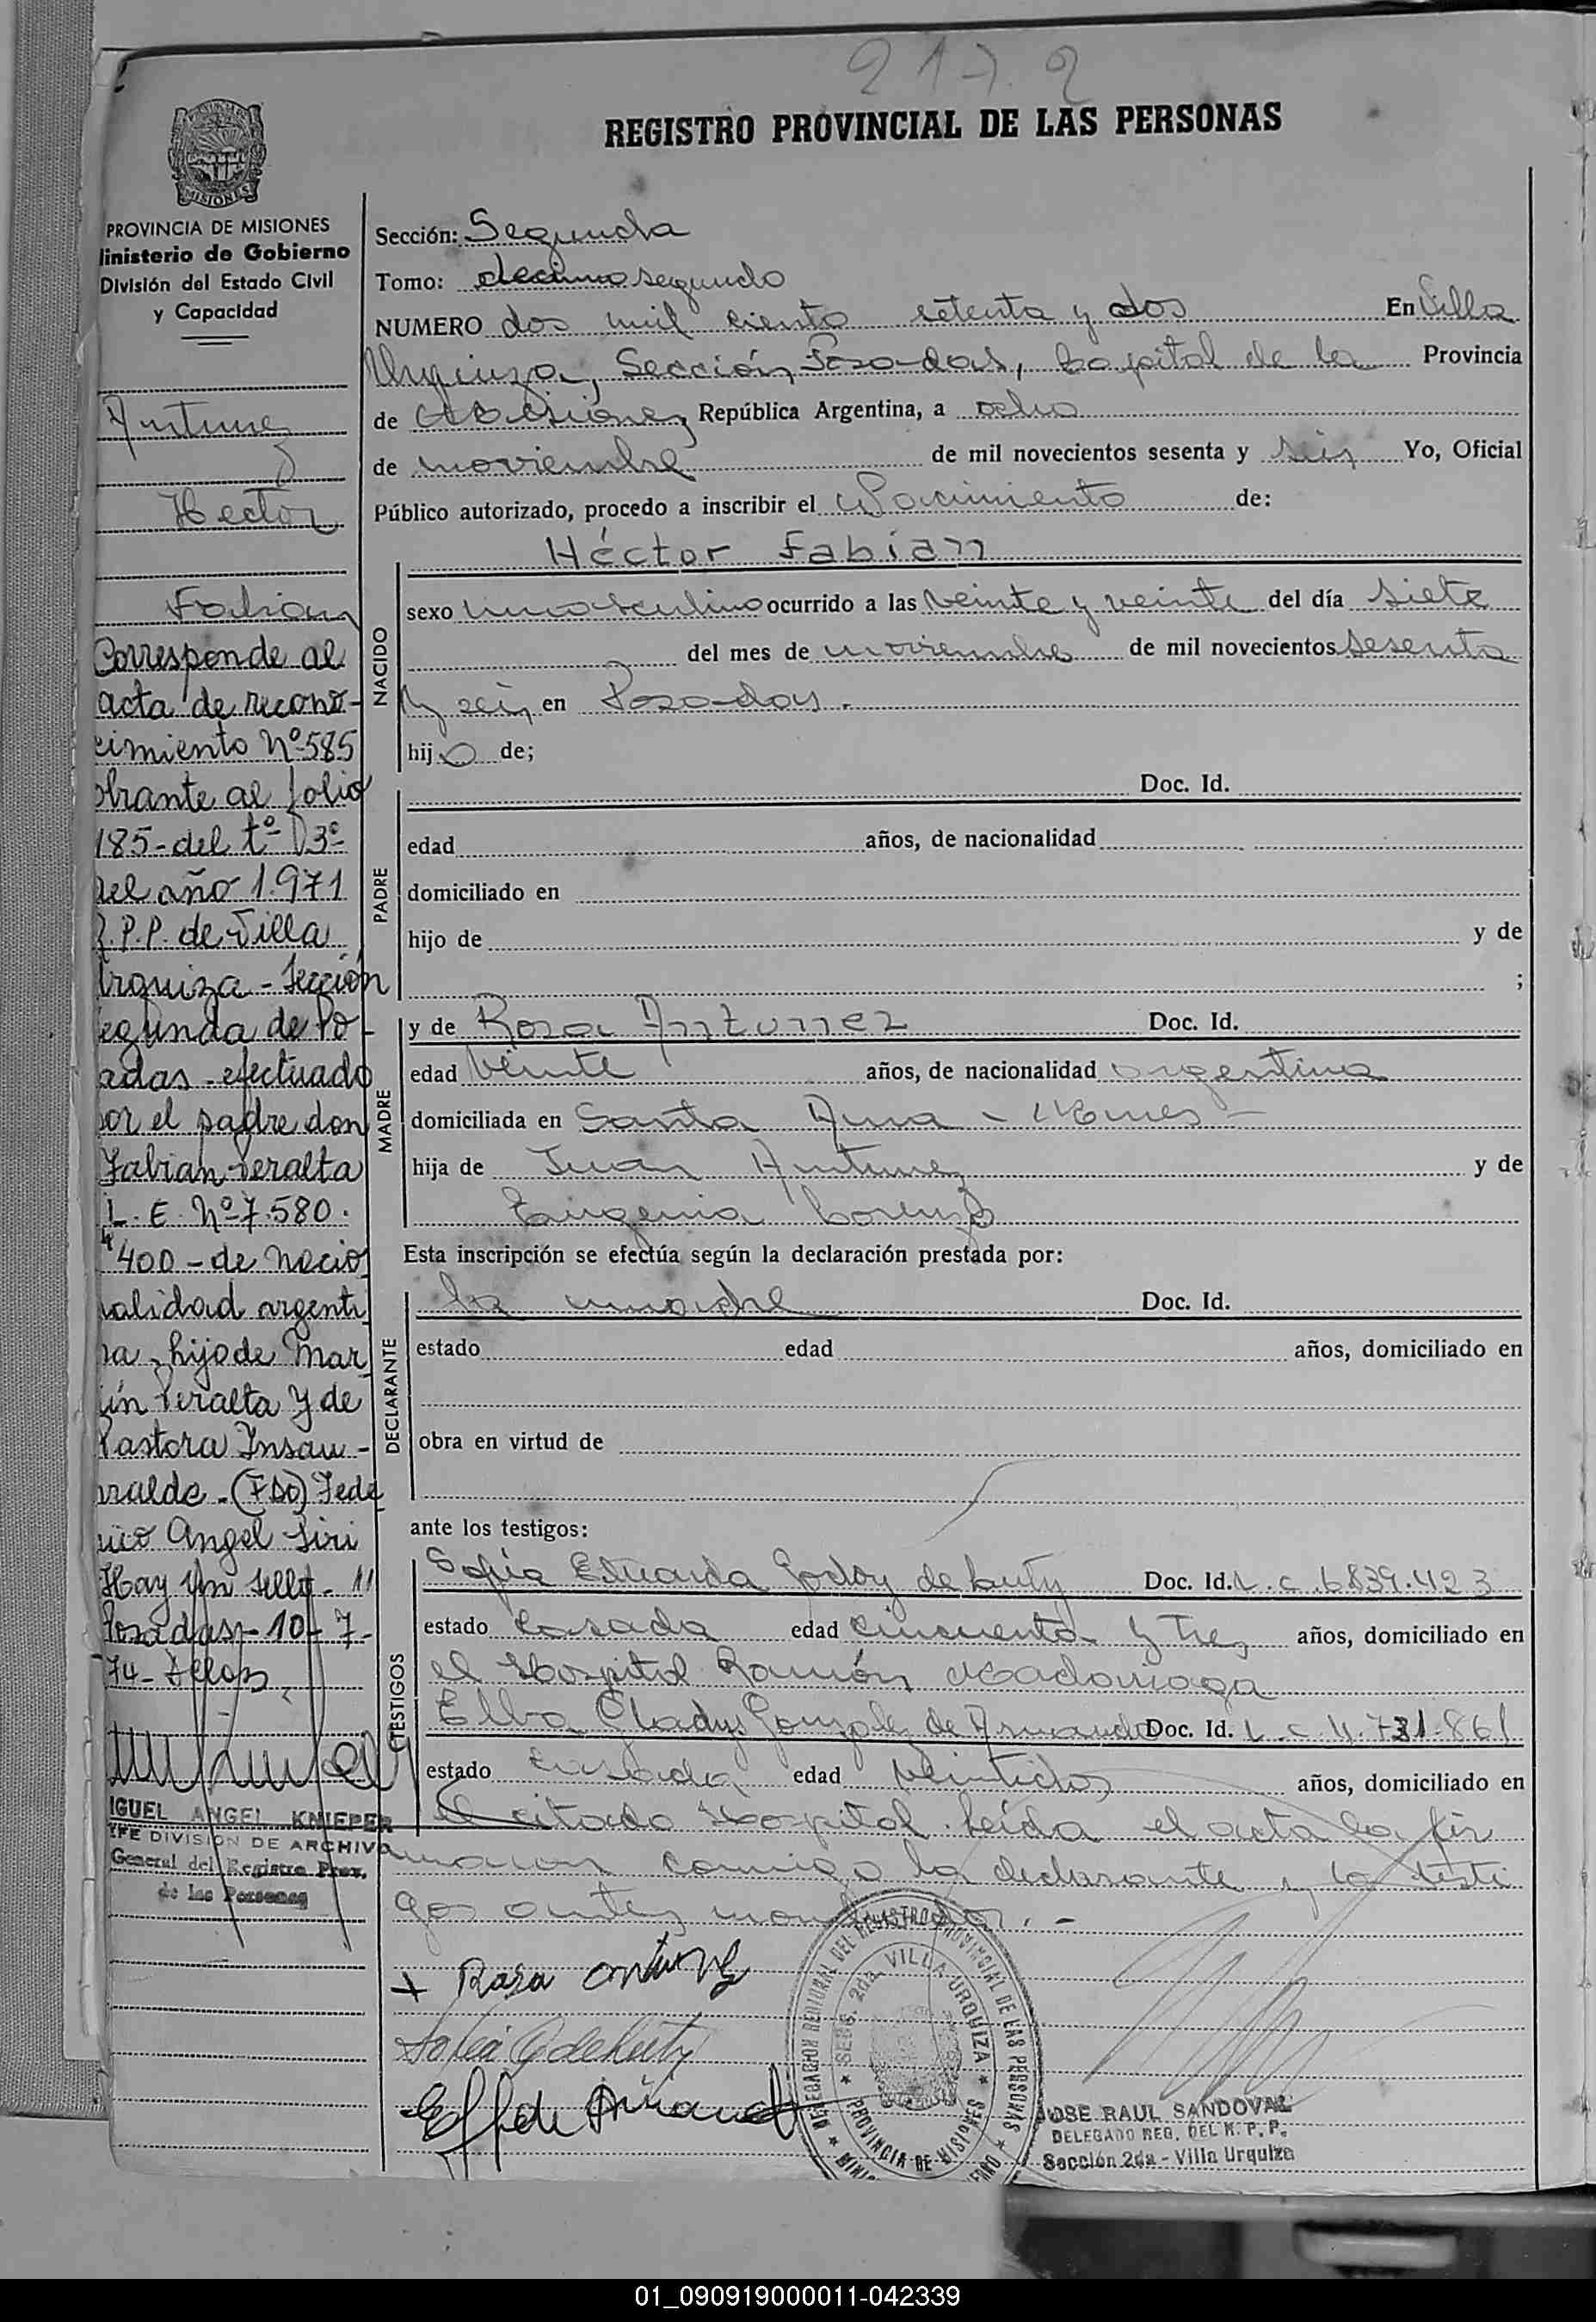 2172
REGISTRO PROVINCIAL DE LAS PERSONAS
MISIONES
PROVINCIA DE MISIONES
inisterio de Gobierno
División del Estado Civil
y Capacidad
Antunez
Hector
Fabian
Corresponde al
acta de recono-
cimiento Nº 585
obrante al folio
185 - del tº 13º
del año 1.971
R.P.P. de Villa
Urquiza - Sección
Segunda de Po-
adas - efectuado
por el padre don
Fabian Peralta
L. E. Nº 7.580.
400 - de nacio
nalidad argenti
na, hijo de Mar
tin Peralta y de
Pastora Insau-
rralde. (FDO) Fede
rico Angel Siri
Hay un sello - "
Posadas - 10 - 7 -
74 -
IGUEL ANGEL KNIEPER
EFE DIVISION DE ARCHIVO
General del Registro Prov.
de las Personas
Sección: Segunda
Tomo: decimo segundo
NUMERO dos mil ciento setenta y dos En Villa
Urquiza, Sección Posadas, Capital de la Provincia
de Misiones, República Argentina, a ocho
de noviembre de mil novecientos sesenta y seis Yo, Oficial
Público autorizado, procedo a inscribir el Nacimiento de:
Héctor Fabian
NACIDO
sexo masculino ocurrido a las veinte y veinte del día siete
del mes de noviembre de mil novecientos sesenta
y seis en Posadas.
hijo de;
PADRE
Doc. Id.
edad años, de nacionalidad
domiciliado en
hijo de y de
;
MADRE
y de Rosa Antunez Doc. Id.
edad veinte años, de nacionalidad argentina
domiciliada en Santa Ana - Mnes -
hija de Juan Antunez y de
Eugenia Lorenzo
Esta inscripción se efectúa según la declaración prestada por:
DECLARANTE
la madre Doc. Id.
estado edad años, domiciliado en
obra en virtud de
ante los testigos:
TESTIGOS
Sofia Eduarda Godoy de Doc. Id. L. C. 6839.423
estado casada edad cincuenta y tres años, domiciliado en
el Hospital Ramón Madariaga
Elba Gladys Gonzalez de Doc. Id. L. C. 4.731.861
estado casada edad veintidos años, domiciliado en
el citado Hospital. Leída el acta la fir
maron conmigo la declarante y los testi
gos antes mencionados. -
+ Rosa Antunez
DELEGACION REGIONAL DEL REGISTRO PROVINCIAL DE LAS PERSONAS
SECC. 2da. VILLA URQUIZA
PROVINCIA DE MISIONES
JOSE RAUL SANDOVAL
DELEGADO REG. DEL R. P. P.
Sección 2da - Villa Urquiza
01_090919000011-042339